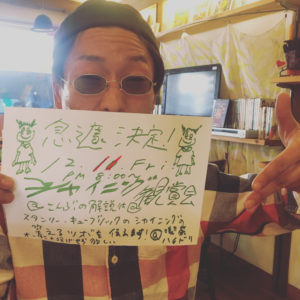 急遽決定!
12.11 Fri
PM 8:00〜
シャイニング観賞会
こんぶの解説
スタンリー・キューブリックのシャイニング
笑えるツボを伝えます!